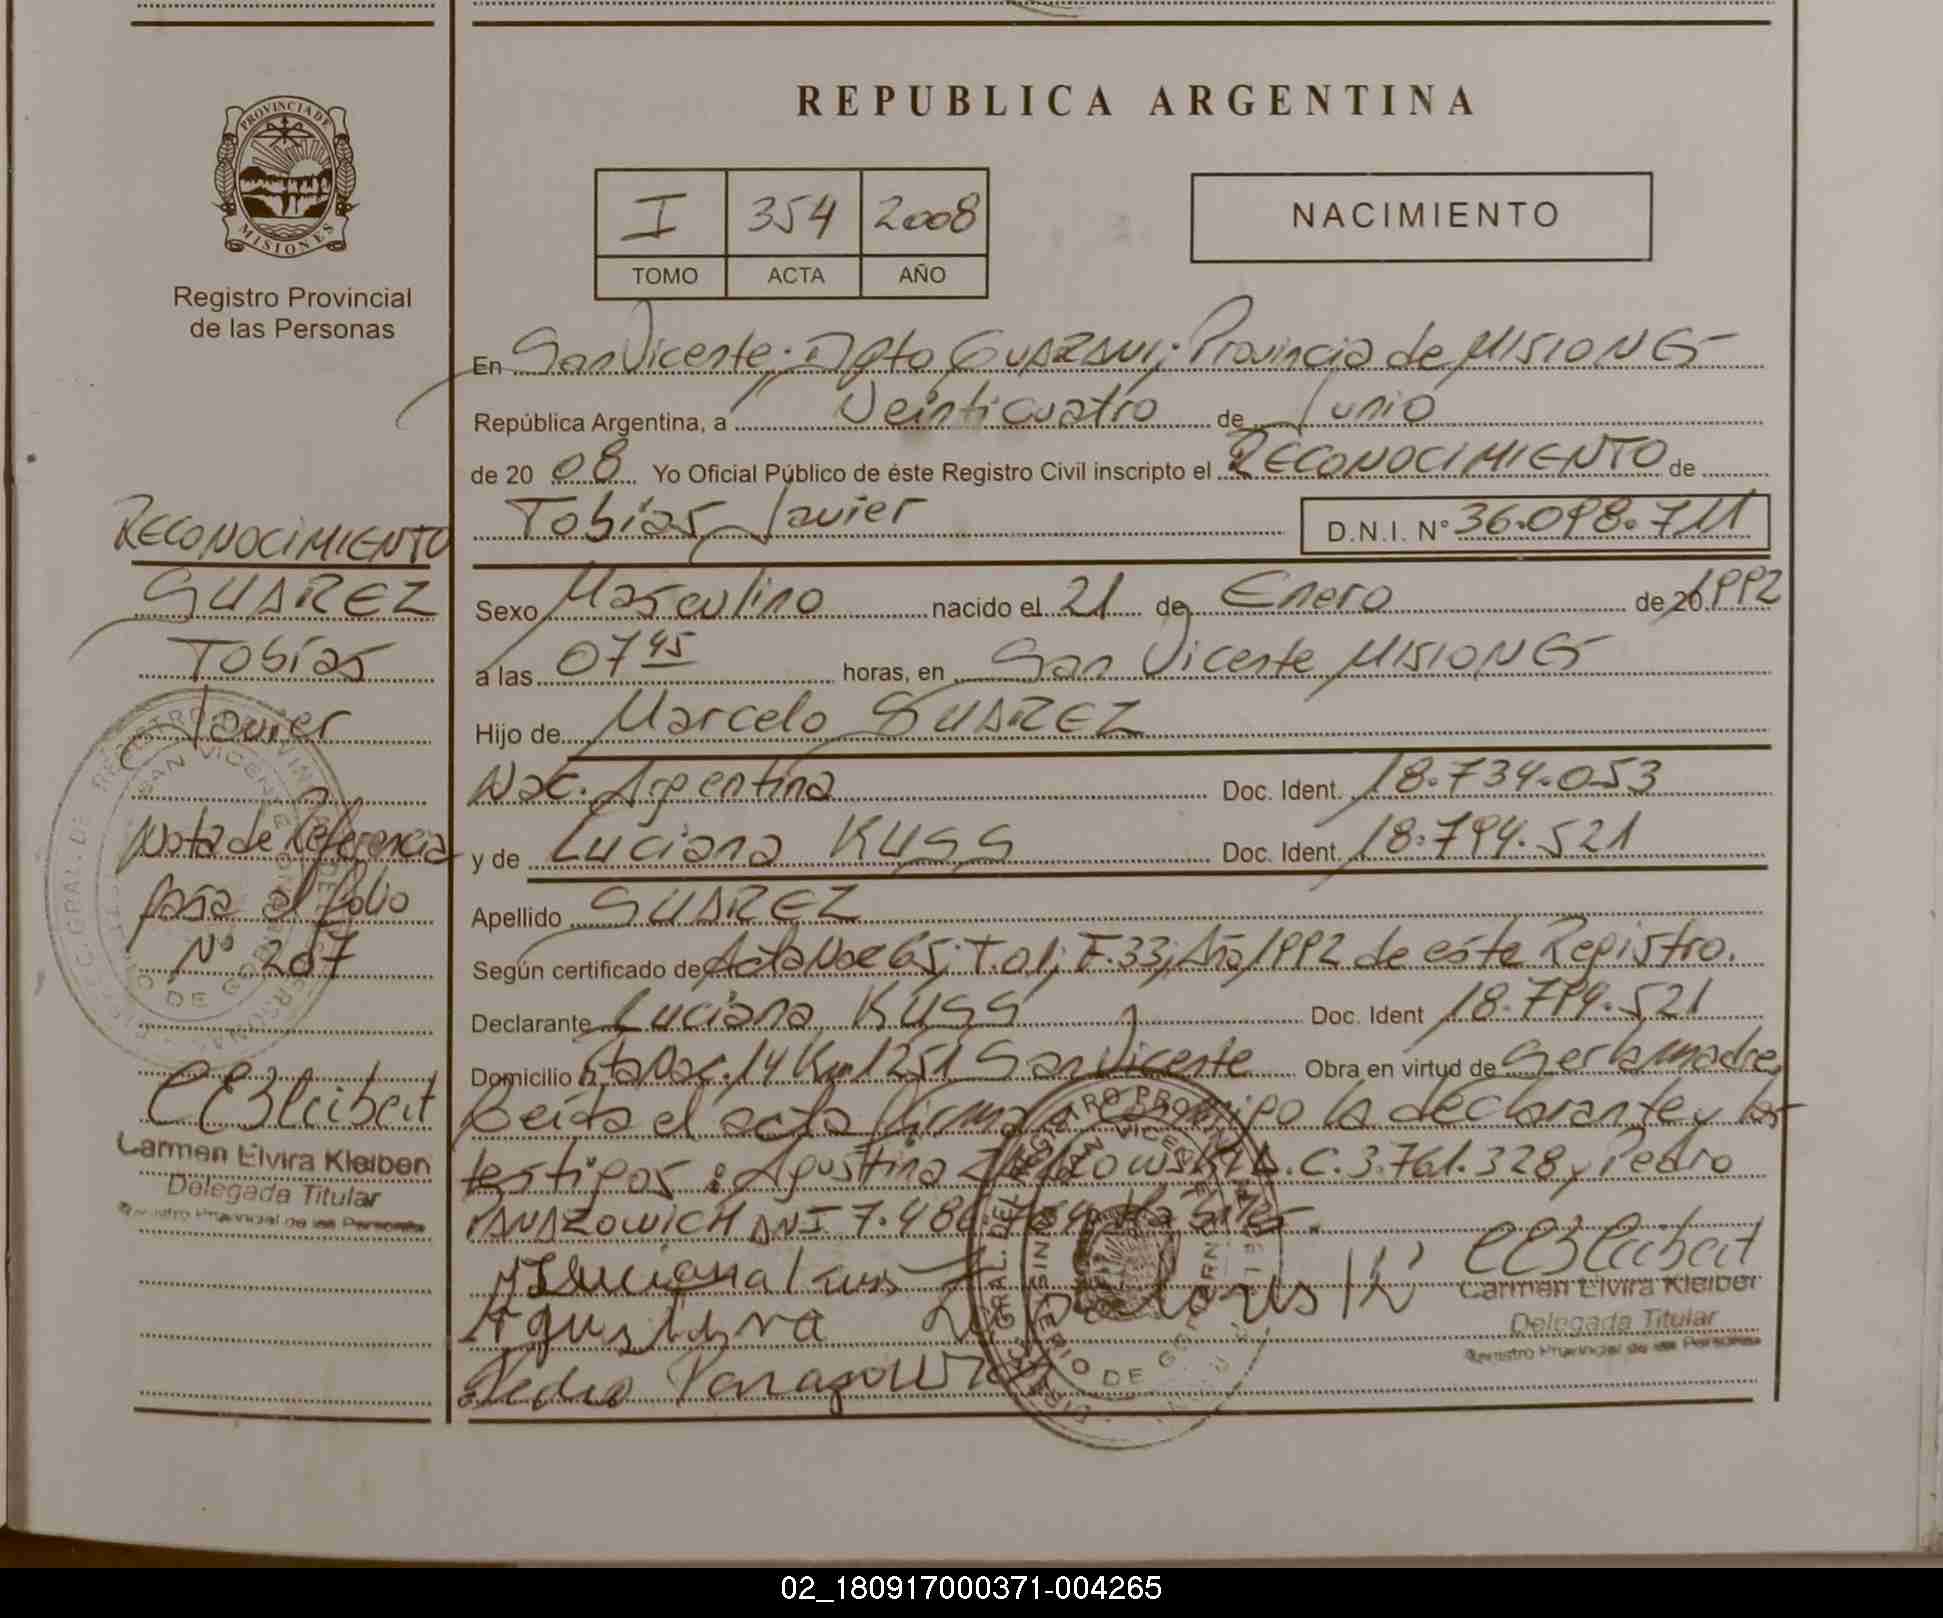 REPUBLICA ARGENTINA
PROVINCIA DE
MISIONES
Registro Provincial
de las Personas
I 354 2008
TOMO ACTA AÑO
NACIMIENTO
En San Vicente; Dpto GUARANI; Provincia de MISIONES
República Argentina, a Veinticuatro de Junio
de 20 08 Yo Oficial Público de éste Registro Civil inscripto el RECONOCIMIENTO de
Tobías Javier D.N.I. N° 36.098.711
Sexo Masculino nacido el 21 de Enero de 20 1992
a las 07 45 horas, en San Vicente MISIONES
Hijo de Marcelo SUAREZ
Nac. Argentina Doc. Ident. 18.734.053
y de Luciana KUSS Doc. Ident. 18.794.521
Apellido SUAREZ
Según certificado de Acta Nac 65; T.01; F.33; Año 1992 de este Registro.
Declarante Luciana KUSS Doc. Ident 18.794.521
Domicilio Ruta Nac. 14 Km 1251 San Vicente Obra en virtud de Ser la madre
Leída el acta firma conmigo la declarante y los
testigos: Agustina L.C. 3.761.328 y Pedro
PANAZOWICH DNI 7.486
Luciana Kuss
Agustina
Pedro Panazowich
Carmen Elvira Kleiber
Delegada Titular
Registro Provincial de las Personas
RECONOCIMIENTO
SUAREZ
Tobías
Javier
Nota de Referencia
pasa al folio
N° 207
Carmen Elvira Kleiber
Delegada Titular
Registro Provincial de las Personas
02_180917000371-004265